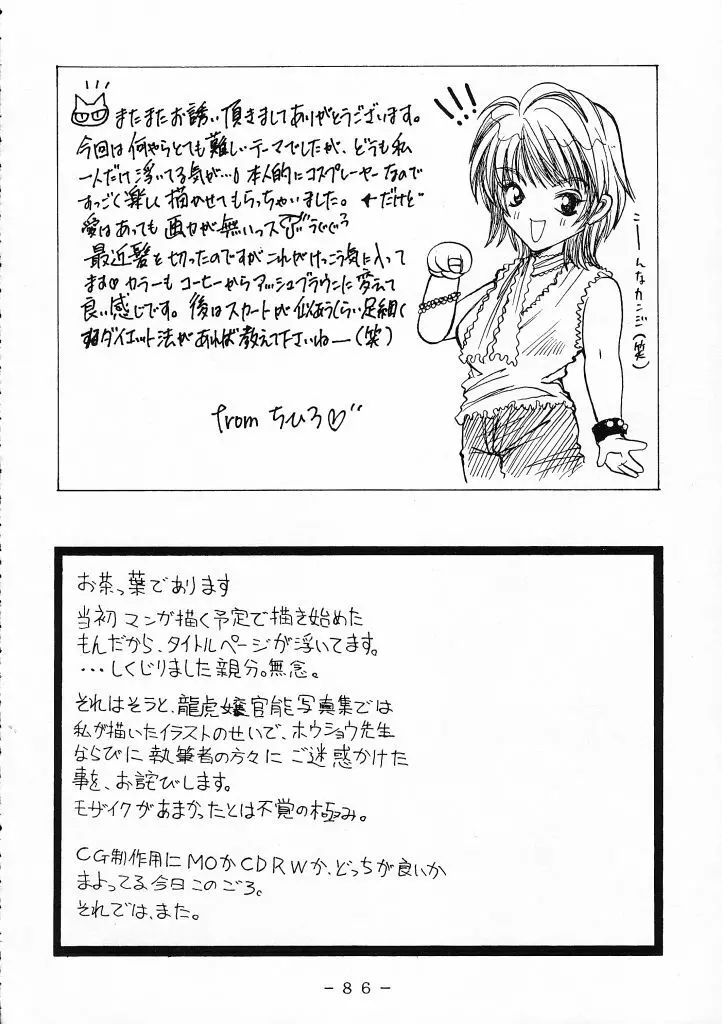 またまたお誘い頂きましてありがとうございます。
今回は何やらとても難しいテーマでしたが、どうも私
一人だけ浮いてる気が…! 本人的にコスプレーヤーなので
すっごく楽しく描かせてもらっちゃいました。←だけど
愛はあっても画力が無いっス
最近髪を切ったのですがこれがけっこう気に入って
ます♡ カラーもコーヒーからアッシュブラウンに変えて
良い感じです。後はスカートが似合うくらい足細く
するダイエット法があれば教えて下さいねー(笑)
from ちひろ♡
!!!
こーんなカンジ(笑)
お茶っ葉であります
当初マンガ描く予定で描き始めた
もんだから、タイトルページが浮いてます。
・・・しくじりました親分。無念。
それはそうと、龍虎嬢官能写真集では
私が描いたイラストのせいで、ホウショウ先生
ならびに執筆者の方々にご迷惑かけた
事を、お詫びします。
モザイクがあまかったとは不覚の極み。
CG制作用にMOかCDRWか、どっちが良いか
まよってる今日このごろ。
それでは、また。
- 86 -